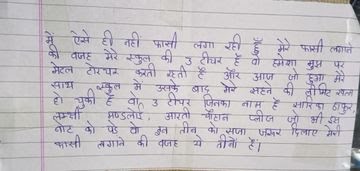 मैं ऐसे ही नहीं फासी लगा रही हूँ मेरे फासी लगाने
की वजह मेरे स्कुल की 3 टीचर है वो हमेशा मुझ पर
मेंटल टोरचर करती रहती है और आज जो हुआ मेरे
साथ स्कुल में उसके बाद मेरे सहने की लीमिट खत्म
हो चुकी है वो 3 टीचर जिनका नाम है सारिका ठाकुर
मण्डलोई, आरती चौहान प्लीज जो भी इस
नोट को पढे वो इन तीन को सजा जरूर दिलाए मेरी
फासी लगाने की वजह ये तीनों है।